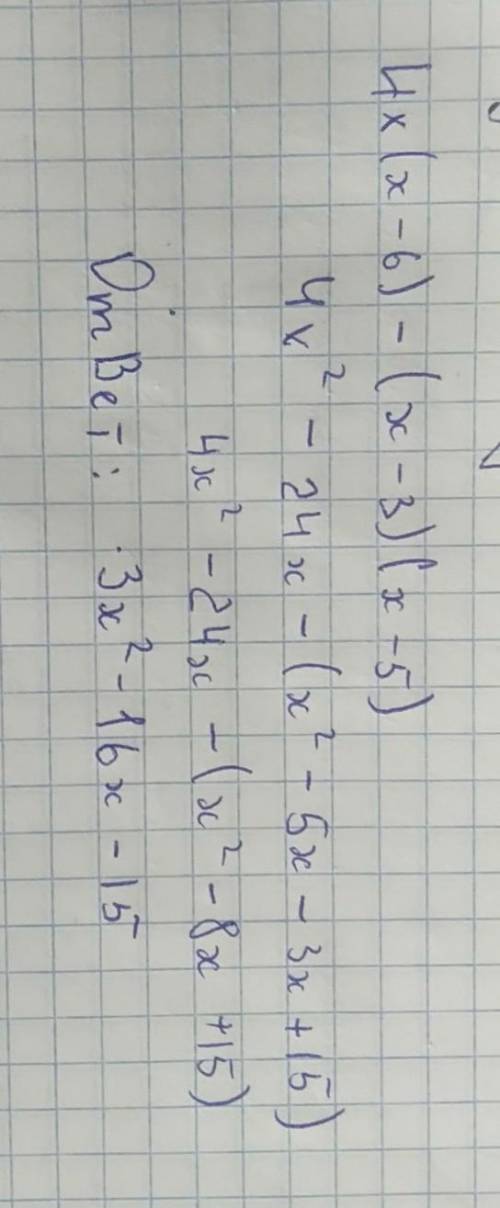 4x(x-6)-(x-3)(x-5)
4x² - 24x - (x² - 5x - 3x + 15)
4x² - 24x - (x² - 8x + 15)
Ответ: 3x² - 16x - 15